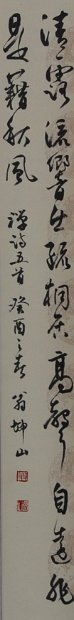 清露流響出疏桐居高聲自遠非
是藉秋風
禪詩五首 癸酉之春 翁坤山